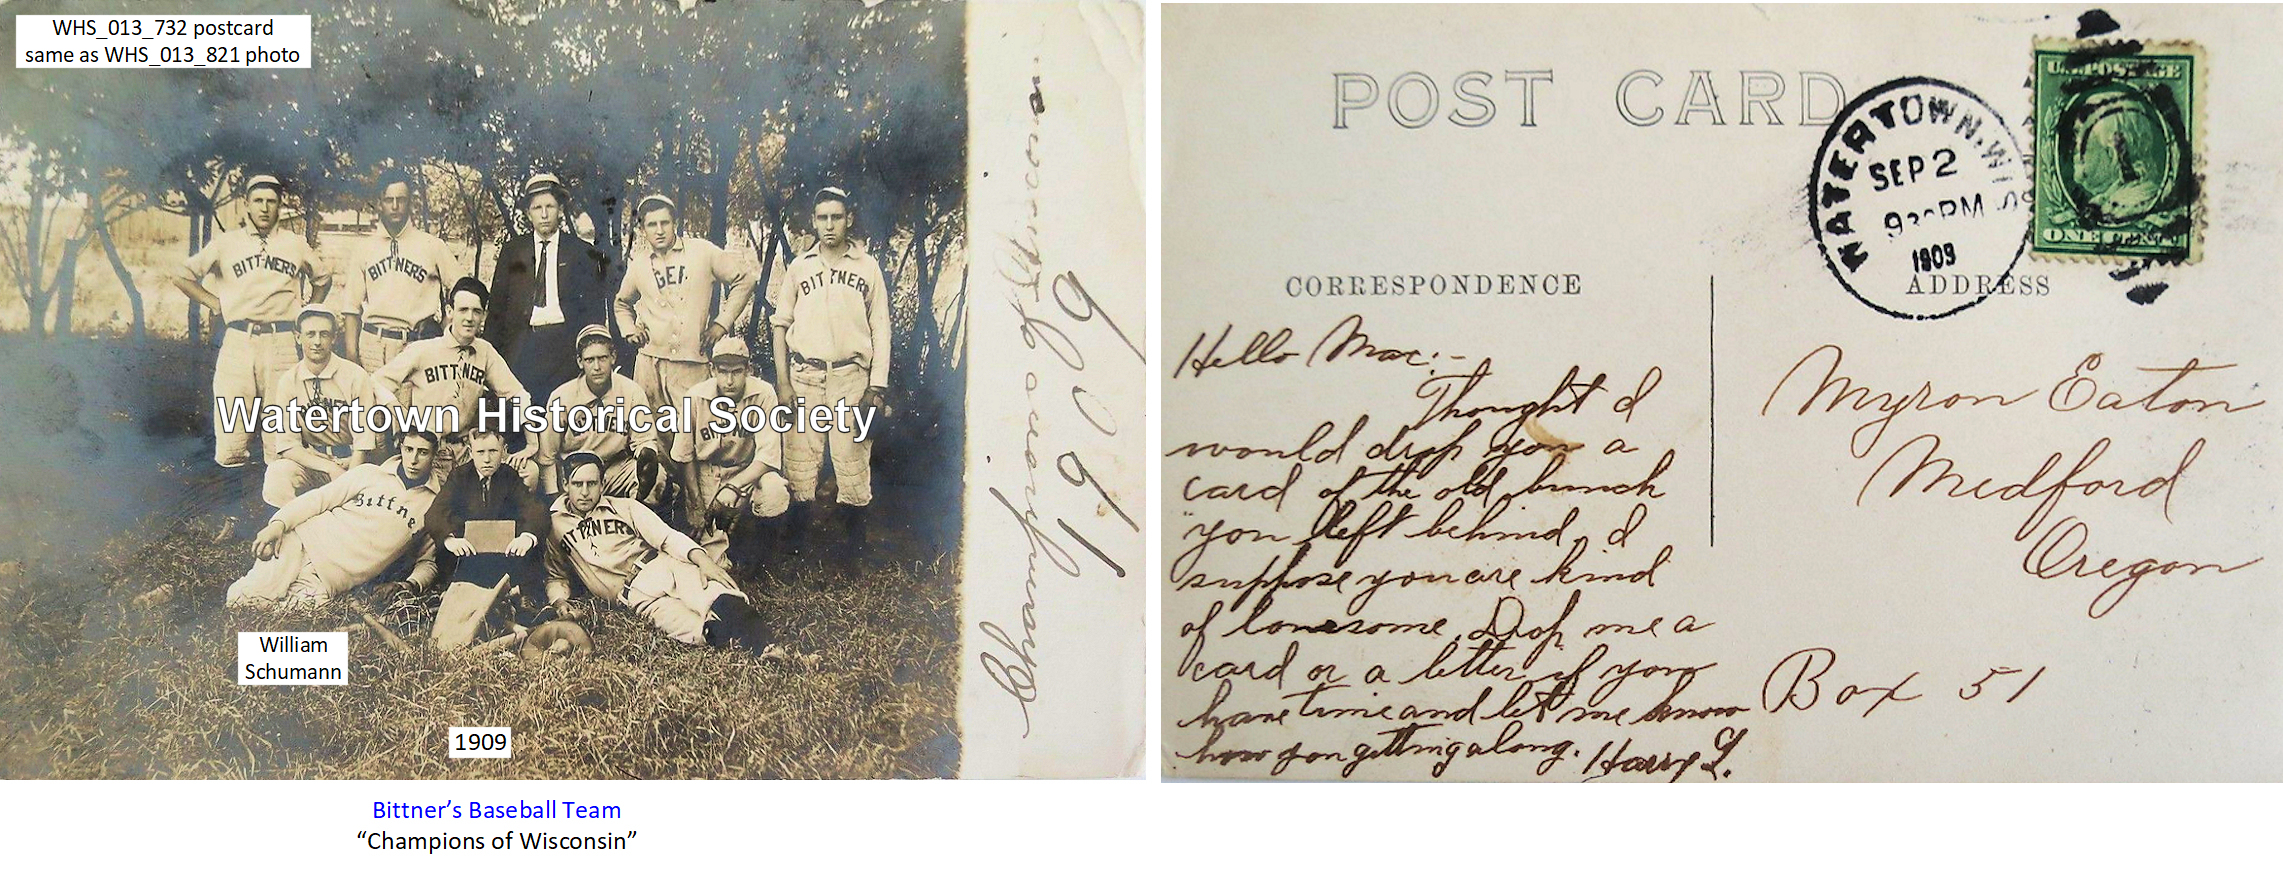 WHS_013_732 postcard
same as WHS_013_821 photo
BITTNERS
BITTNERS
GER
BITTNERS
BITTNER
Watertown Historical Society
BITTNE
Bittne
BITTNERS
William
Schumann
1909
Champions of Wisconsin
1909
Bittner's Baseball Team
“Champions of Wisconsin”
POST CARD
WATERTOWN, WIS
SEP 2
930 PM
1909
U.S. POSTAGE
ONE CENT
1
CORRESPONDENCE
ADDRESS
Hello Mac:-
Thought I
would drop you a
card of the old bunch
you left behind. I
suppose you are kind
of lonesome. Drop me a
card or a letter if you
have time and let me know
how you getting along. Harry L.
Myron Eaton
Medford
Oregon
Box 51